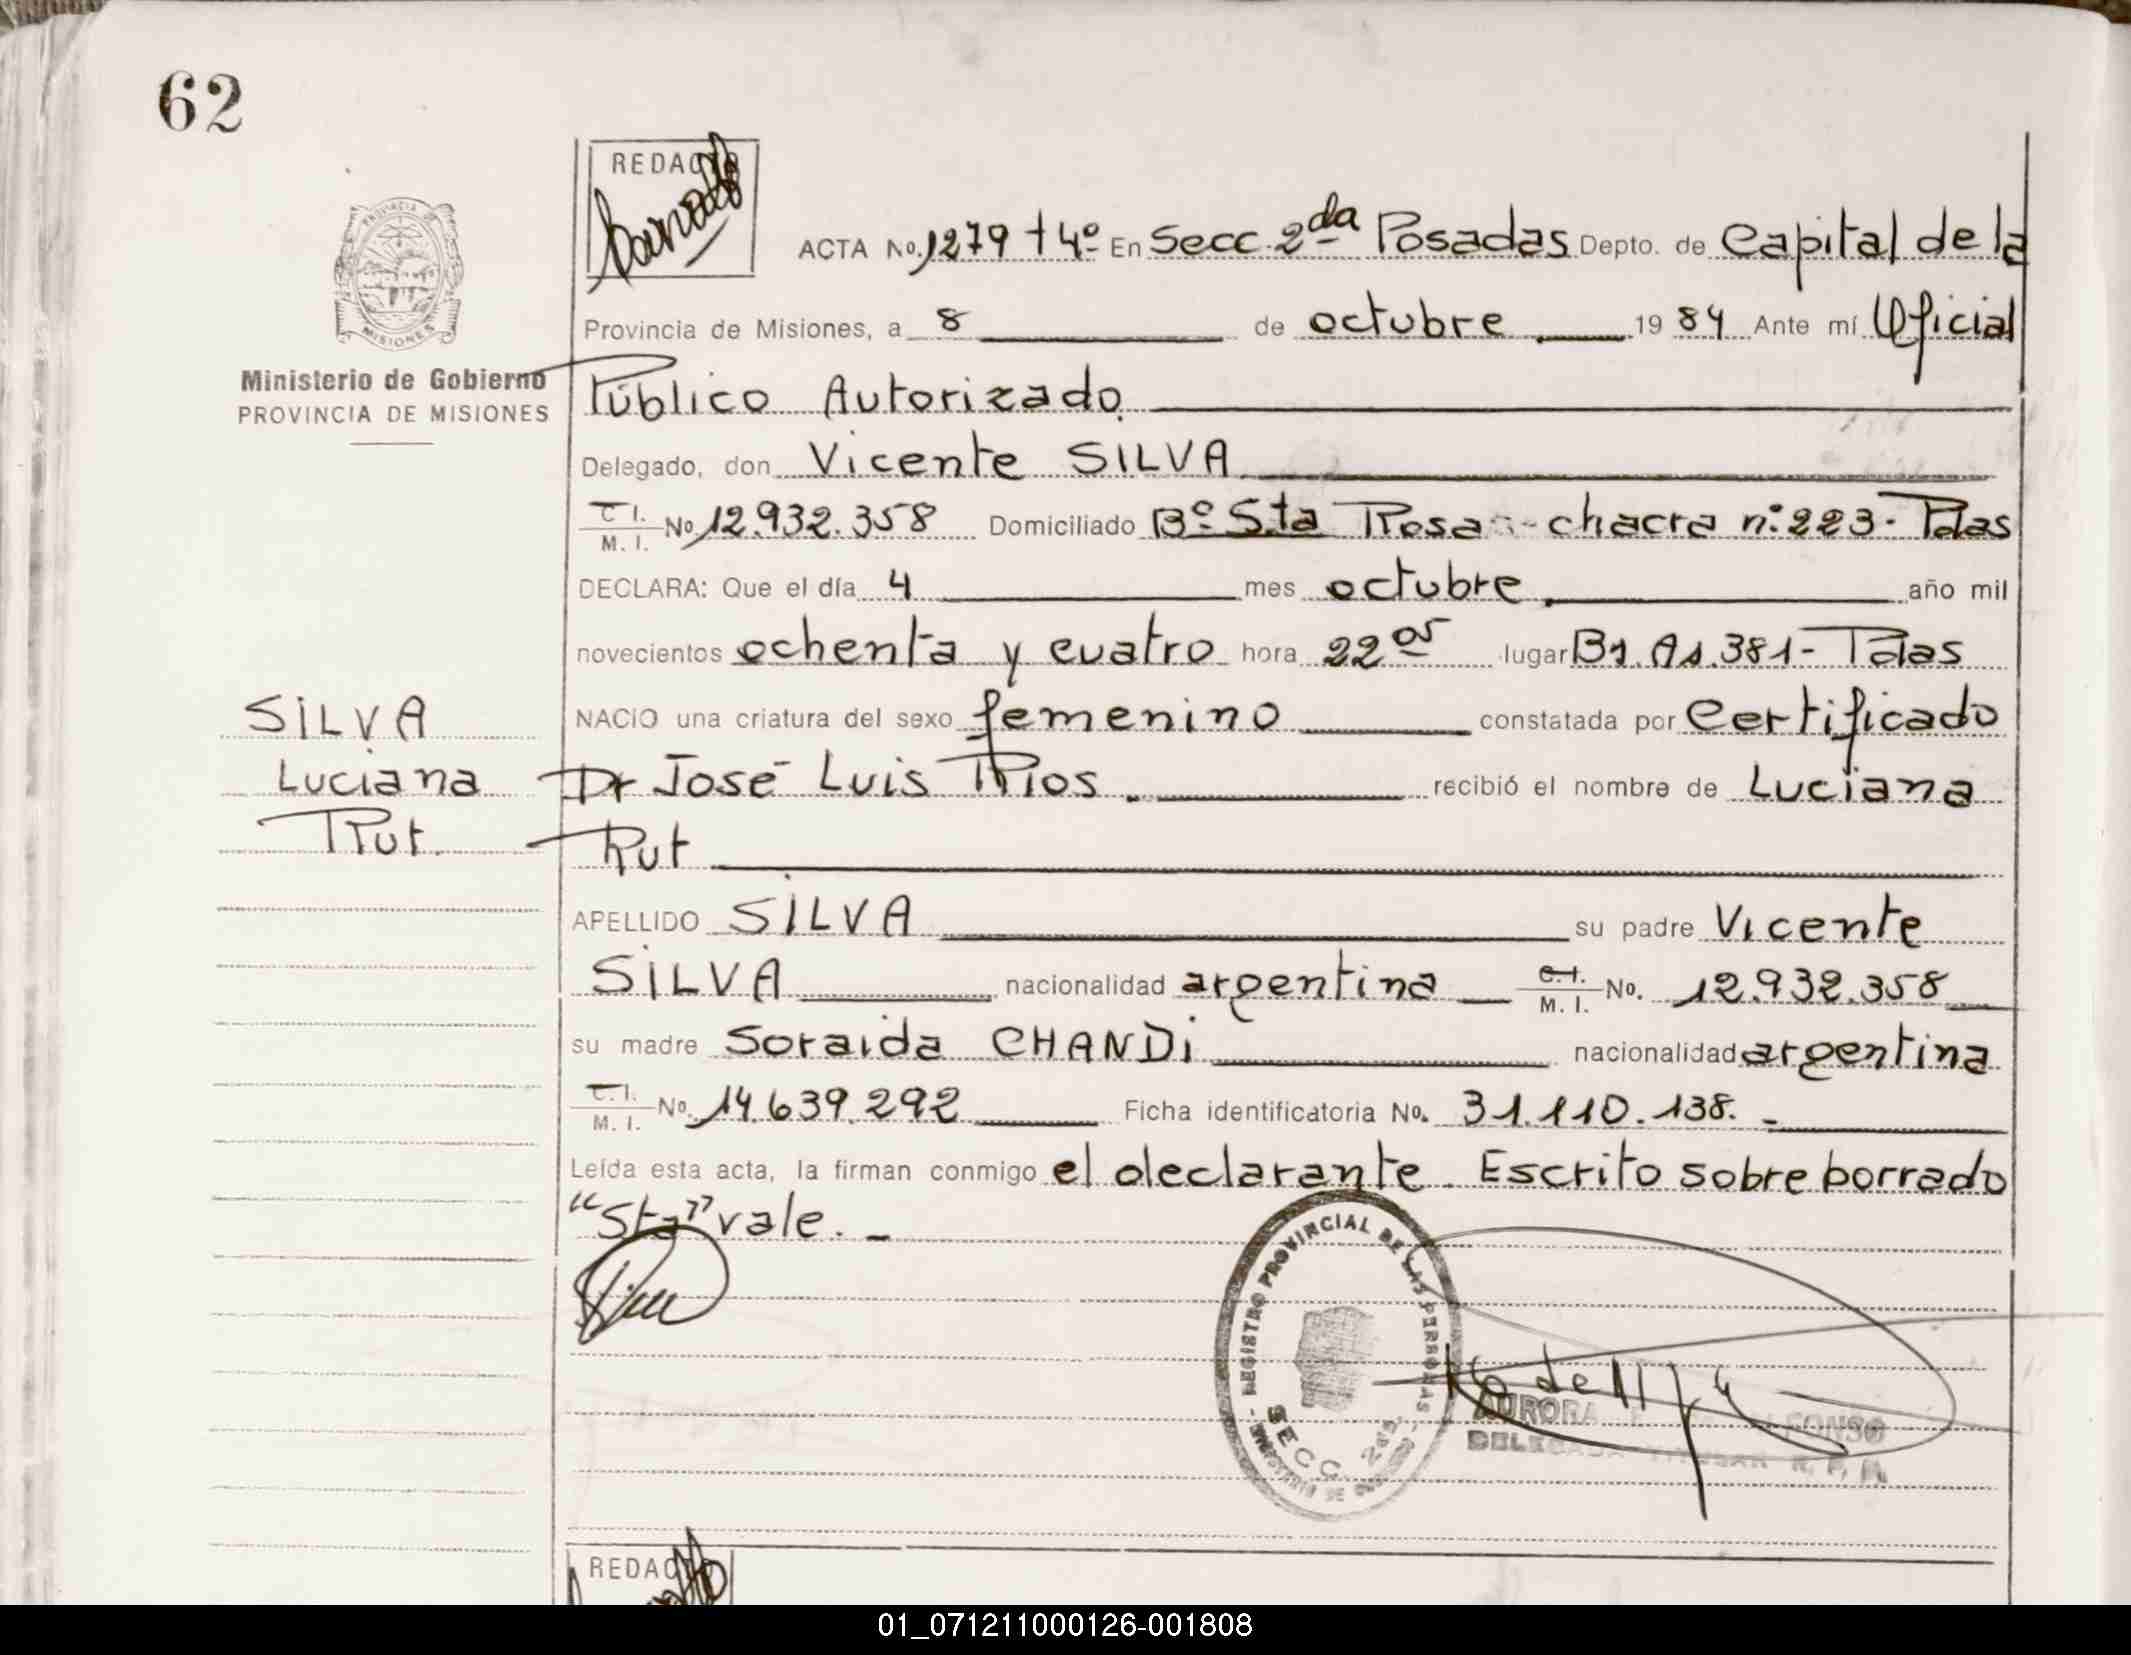 62
REDACTO
ACTA No. 1279 t 4º En Secc. 2da Posadas Depto. de Capital de la
PROVINCIA DE MISIONES
Provincia de Misiones, a 8 de octubre 1984 Ante mí Oficial
Ministerio de Gobierno
PROVINCIA DE MISIONES
Público Autorizado
Delegado, don Vicente SILVA
C I. M. I. No. 12.932.358 Domiciliado Bº Sta Rosa - chacra nº 223 - Pdas
DECLARA: Que el día 4 mes octubre año mil
novecientos ochenta y cuatro hora 22 05 lugar B1. As. 381 - Pdas
SILVA
NACIO una criatura del sexo femenino constatada por Certificado
Luciana
Dr José Luis Rios. recibió el nombre de Luciana
Rut.
Rut
APELLIDO SILVA su padre Vicente
SILVA nacionalidad argentina C.I. M. I. No. 12.932.358
su madre Soraida CHANDI nacionalidad argentina
C.I. M. I. No. 14.639.292 Ficha identificatoria No. 31.110.138.
Leída esta acta, la firman conmigo el declarante. Escrito sobre borrado
"Sta" vale.
REGISTRO PROVINCIAL DE LAS PERSONAS
SECC. 2da
AURORA
REDACTO
01_071211000126-001808